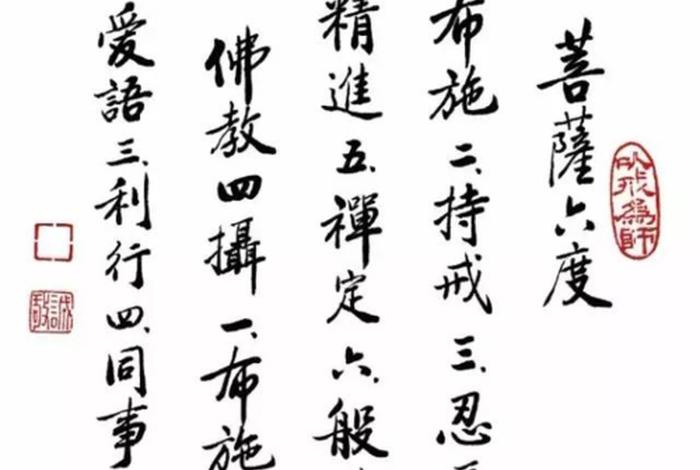 菩薩六度
布施二、持戒三、忍
精進五、禪定六、般
佛教四攝一、布施
愛語三、利行四、同事
以戒為師
誠敬